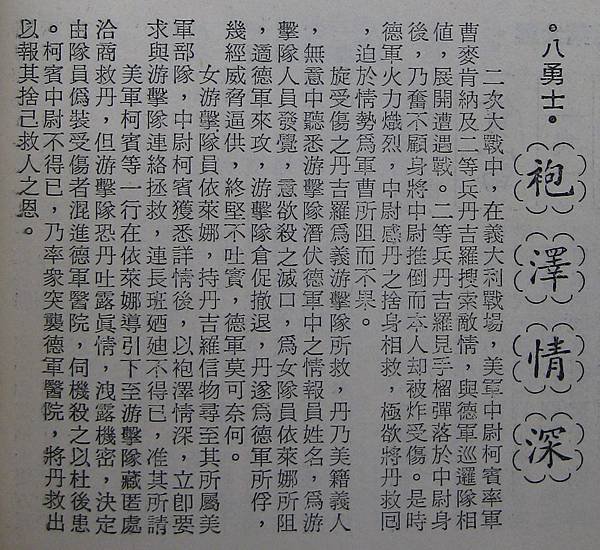 。八勇士。
袍澤情深
二次大戰中，在義大利戰場，美軍中尉柯賓率軍
曹麥肯納及二等兵丹吉羅搜索敵情，與德軍巡邏隊相
值，展開遭遇戰。二等兵丹吉羅見手榴彈落於中尉身
後，乃奮不顧身將中尉推倒而本人却被炸受傷。是時
德軍火力熾烈，中尉感丹之捨身相救，極欲將丹救回
，迫於情勢爲軍曹所阻而不果。
旋受傷之丹吉羅爲義游擊隊所救，丹乃美籍義人
，無意中聽悉游擊隊潛伏德軍中之情報員姓名，爲游
擊隊人員發覺，意欲殺之滅口，爲女隊員依萊娜所阻
，適德軍來攻，游擊隊倉促撤退，丹遂爲德軍所俘，
幾經威脅逼供，終堅不吐實，德軍莫可奈何。
女游擊隊員依萊娜，持丹吉羅信物尋至其所屬美
軍部隊，中尉柯賓獲悉詳情後，以袍澤情深，立卽要
求與游擊隊連絡拯救，連長班廼廸不得已，准其所請
美軍柯賓等一行在依萊娜導引下至游擊隊藏匿處
洽商救丹，但游擊隊恐丹吐露眞情，洩露機密，決定
由隊員僞裝受傷者混進德軍醫院，伺機殺之以杜後患
。柯賓中尉不得已，乃率衆突襲德軍醫院，將丹救出
以報其捨己救人之恩。